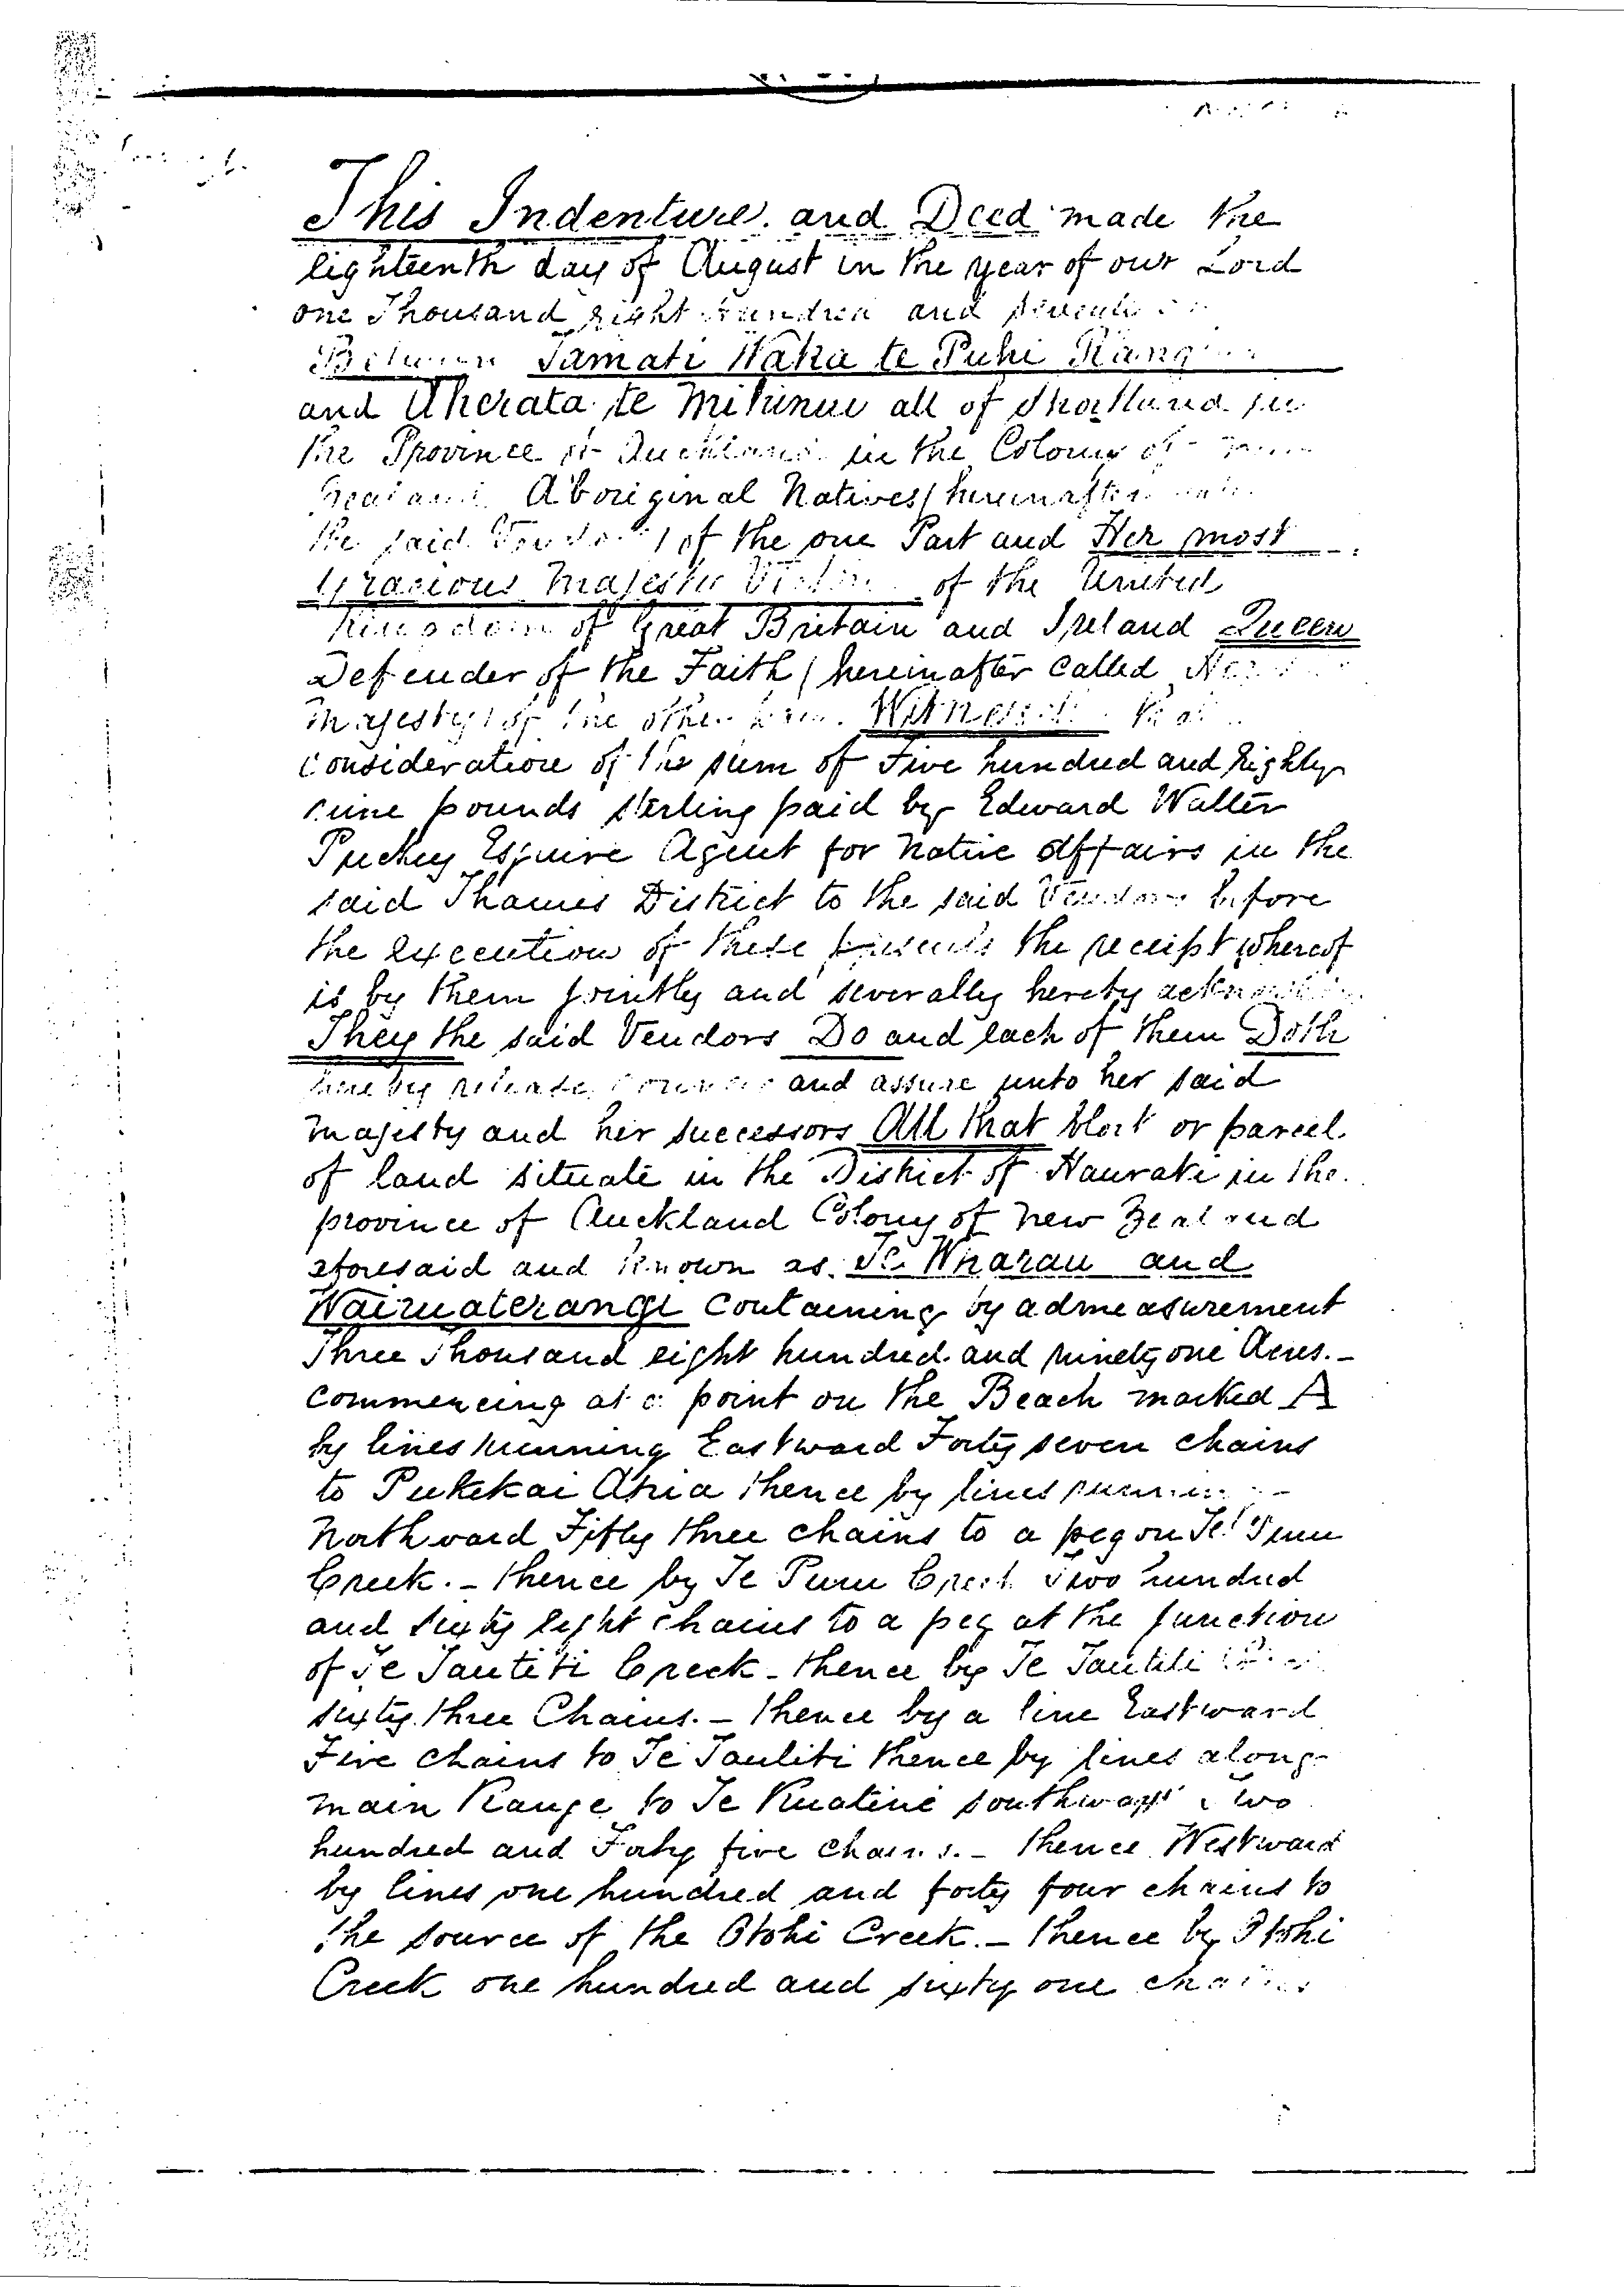 This Indenture and Deed made the
eighteenth day of August in the year of our Lord
one Thousand eight hundred and
Between Tamati Waka te Puhi
and Aherata te Mihinui all of Shortland in
the Province of Auckland in the Colony of
Zealand Aboriginal Natives (hereinafter
the said Vendors) of the one Part and Her most
Gracious Majesty Victoria of the United
Kingdom of Great Britain and Ireland Queen
Defender of the Faith (hereinafter called Her
Majesty) of the other Witnesseth that
consideration of the sum of Five hundred and Eighty
nine pounds sterling paid by Edward Walter
Puckey Esquire Agent for Native Affairs in the
said Thames District to the said Vendors before
the execution of these presents the receipt whereof
is by them jointly and severally hereby
They the said Vendors Do and each of them Doth
hereby release convey and assure unto her said
Majesty and her successors All that block or parcel
of land situate in the District of Hauraki in the
province of Auckland Colony of New Zealand
aforesaid and known as Te Wharau and
Wairuaterangi containing by admeasurement
Three Thousand eight hundred and ninety one Acres. -
Commencing at a point on the Beach marked A
by lines running Eastward Forty seven chains
to Pukekai Ahia thence by lines running
Northward Fifty three chains to a peg on Te Puru
Creek. - thence by Te Puru Creek Two hundred
and sixty eight chains to a peg at the junction
of Te Tautiti Creek - thence by Te Tautiti
sixty three Chains. - thence by a line Eastward
Five chains to Te Tautiti thence by lines along
main Range to Te Ruatine southward Two
hundred and Forty five chains. - thence Westward
by lines one hundred and forty four chains to
the source of the Otohi Creek. - thence by Otohi
Creek one hundred and sixty one chains